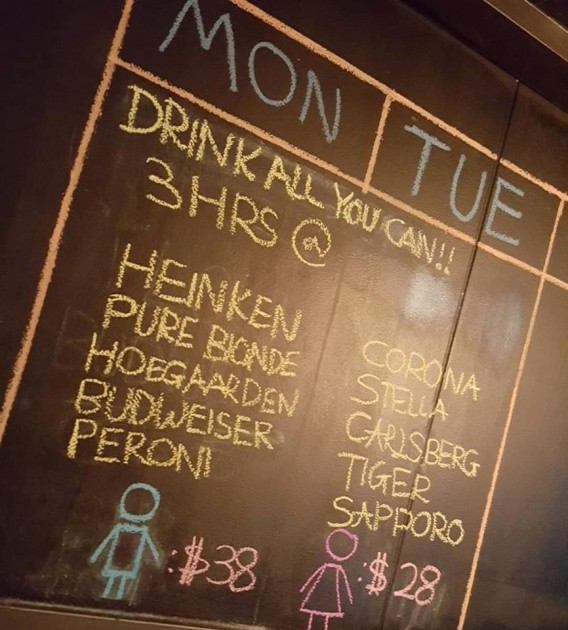 MON
TUE
DRINK ALL YOU CAN!!
3 HRS @
HEINKEN
PURE BLONDE
HOEGAARDEN
BUDWEISER
PERONI
CORONA
STELLA
CARLSBERG
TIGER
SAPPORO
:$38
:$28